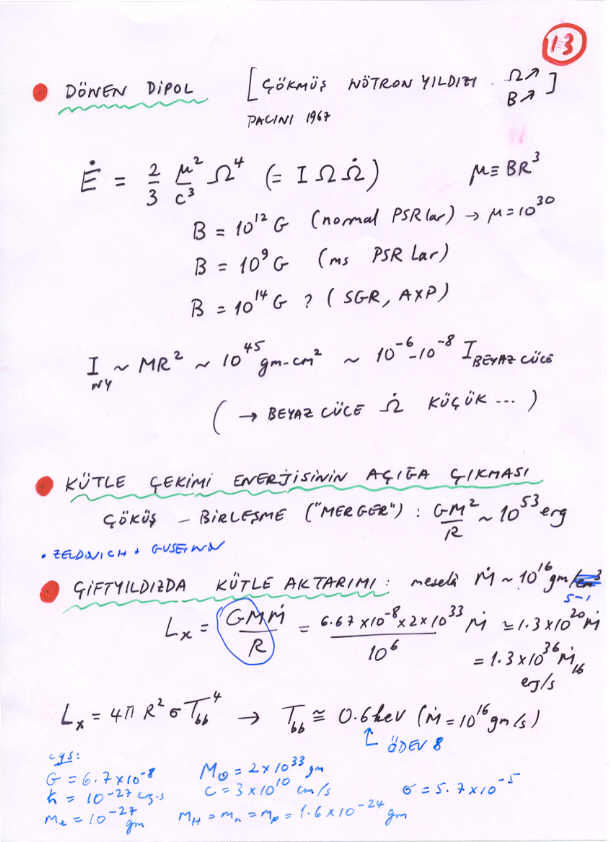 13
• DÖNEN DİPOL [ÇÖKMÜŞ NÖTRON YILDIZI . Ω↗ B↗]
PACINI 1967
Ė = 2/3 μ²/c³ Ω⁴ (= I Ω Ω̇) μ ≡ BR³
B = 10¹² G (normal PSR lar) → μ = 10³⁰
B = 10⁹ G (ms PSR lar)
B = 10¹⁴ G ? (SGR, AXP)
I_NY ~ MR² ~ 10⁴⁵ gm-cm² ~ 10⁻⁶-10⁻⁸ I_BEYAZ CÜCE
( → BEYAZ CÜCE Ω̇ KÜÇÜK ... )
• KÜTLE ÇEKİMİ ENERJİSİNİN AÇIĞA ÇIKMASI
ÇÖKÜŞ – BİRLEŞME ("MERGER") : GM²/R ~ 10⁵³ erg
• ZELDOVICH +
• ÇİFTYILDIZDA KÜTLE AKTARIMI : meselâ Ṁ ~ 10¹⁶ gm/ s-1
Lx = GMṀ/R = 6.67 x10⁻⁸ x 2 x 10³³ Ṁ / 10⁶ ≃ 1.3 x 10²⁰ Ṁ
= 1.3 x 10³⁶ Ṁ₁₆
erg/s
Lx = 4π R² σ T_bb⁴ → T_bb ≅ 0.6 keV (Ṁ = 10¹⁶ gm/s)
↑ ÖDEV 8
cgs:
G = 6.7 x 10⁻⁸ M⊙ = 2 x 10³³ gm
ħ = 10⁻²⁷ erg-s c = 3 x 10¹⁰ cm/s σ = 5.7 x 10⁻⁵
mₑ = 10⁻²⁷ gm m_H = m_n = m_p = 1.6 x 10⁻²⁴ gm